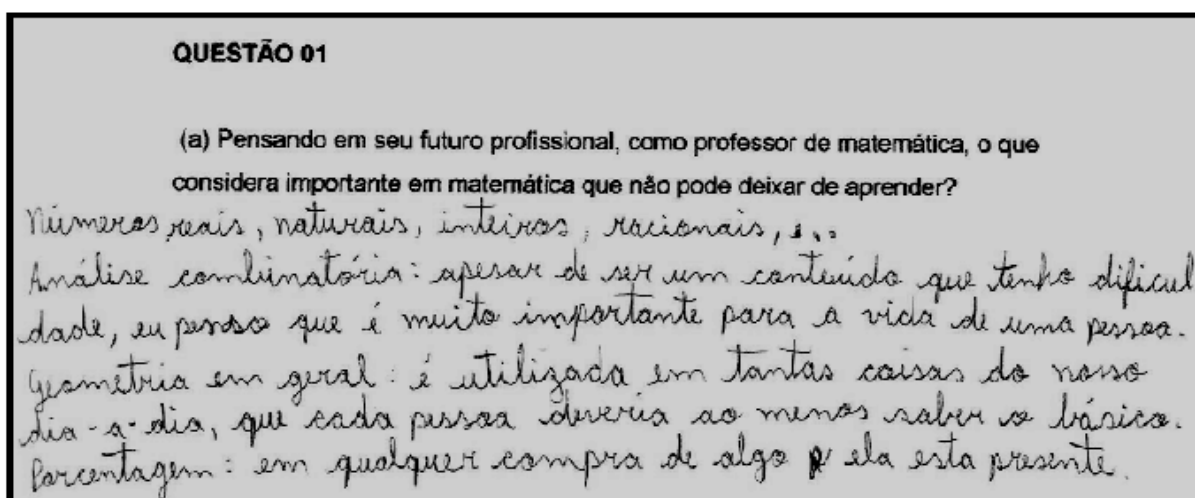 QUESTÃO 01
(a) Pensando em seu futuro profissional, como professor de matemática, o que
considera importante em matemática que não pode deixar de aprender?
Números reais, naturais, inteiros, racionais, ...
Análise combinatória: apesar de ser um conteúdo que tenho dificul
dade, eu penso que é muito importante para a vida de uma pessoa.
Geometria em geral: é utilizada em tantas coisas do nosso
dia-a-dia, que cada pessoa deveria ao menos saber o básico.
Porcentagem: em qualquer compra de algo ela esta presente.